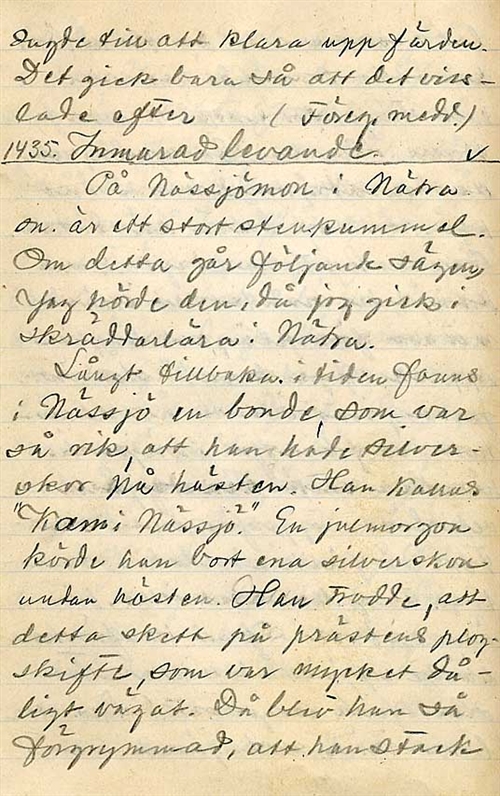 sugde till att klara upp färden.
Det gick bara så att det viss-
lade efter (Föreg. medd.)
1435. Inmurad levande. ✓
På Nässjömon i Nätra
sn. är ett stort stenkummel.
Om detta går följande sägen,
Jag hörde den, då jag gick i
skräddarlära i Nätra.
Långt tillbaka i tiden fanns
i Nässjö en bonde, som var
så rik, att han hade silver-
skor på hästen. Han kallas
"Kam i Nässjö." En julmorgon
körde han bort ena silverskon
undan hästen. Han trodde, att
detta skett på prästens plog-
skifte, som var mycket då-
ligt vägat. Då blev han så
förgrymmad, att han stack